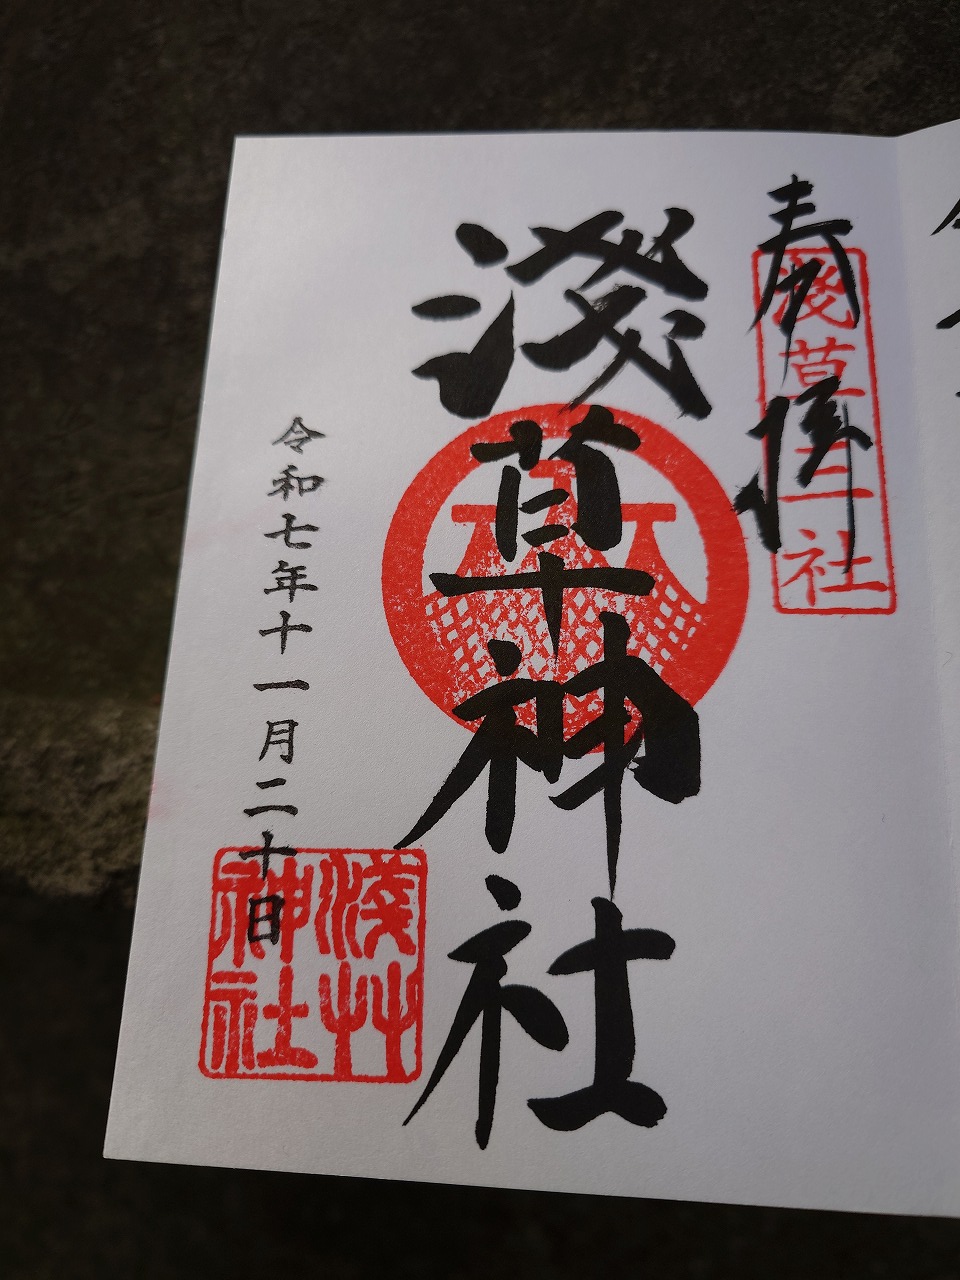 奉拝
淺草三社
淺草神社
令和七年十一月二十日
淺艸神社